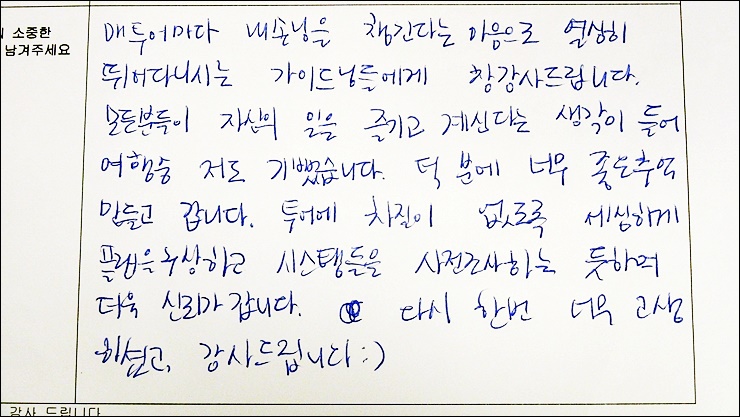 소중한
남겨주세요
매투어마다 내손님을 챙긴다는 마음으로 열심히
뛰어다니시는 가이드님들에게 참감사드립니다.
모든분들이 자신의 일을 즐기고 계신다는 생각이 들어
여행중 저도 기뻤습니다. 덕분에 너무 좋은추억
만들고 갑니다. 투어에 차질이 없도록 세심하게
플랜을 구상하고 시스템들을 사전조사하는 듯하여
더욱 신뢰가 갑니다. 다시 한번 너무 고생
하셨고, 감사드립니다 :)
감사 드립니다